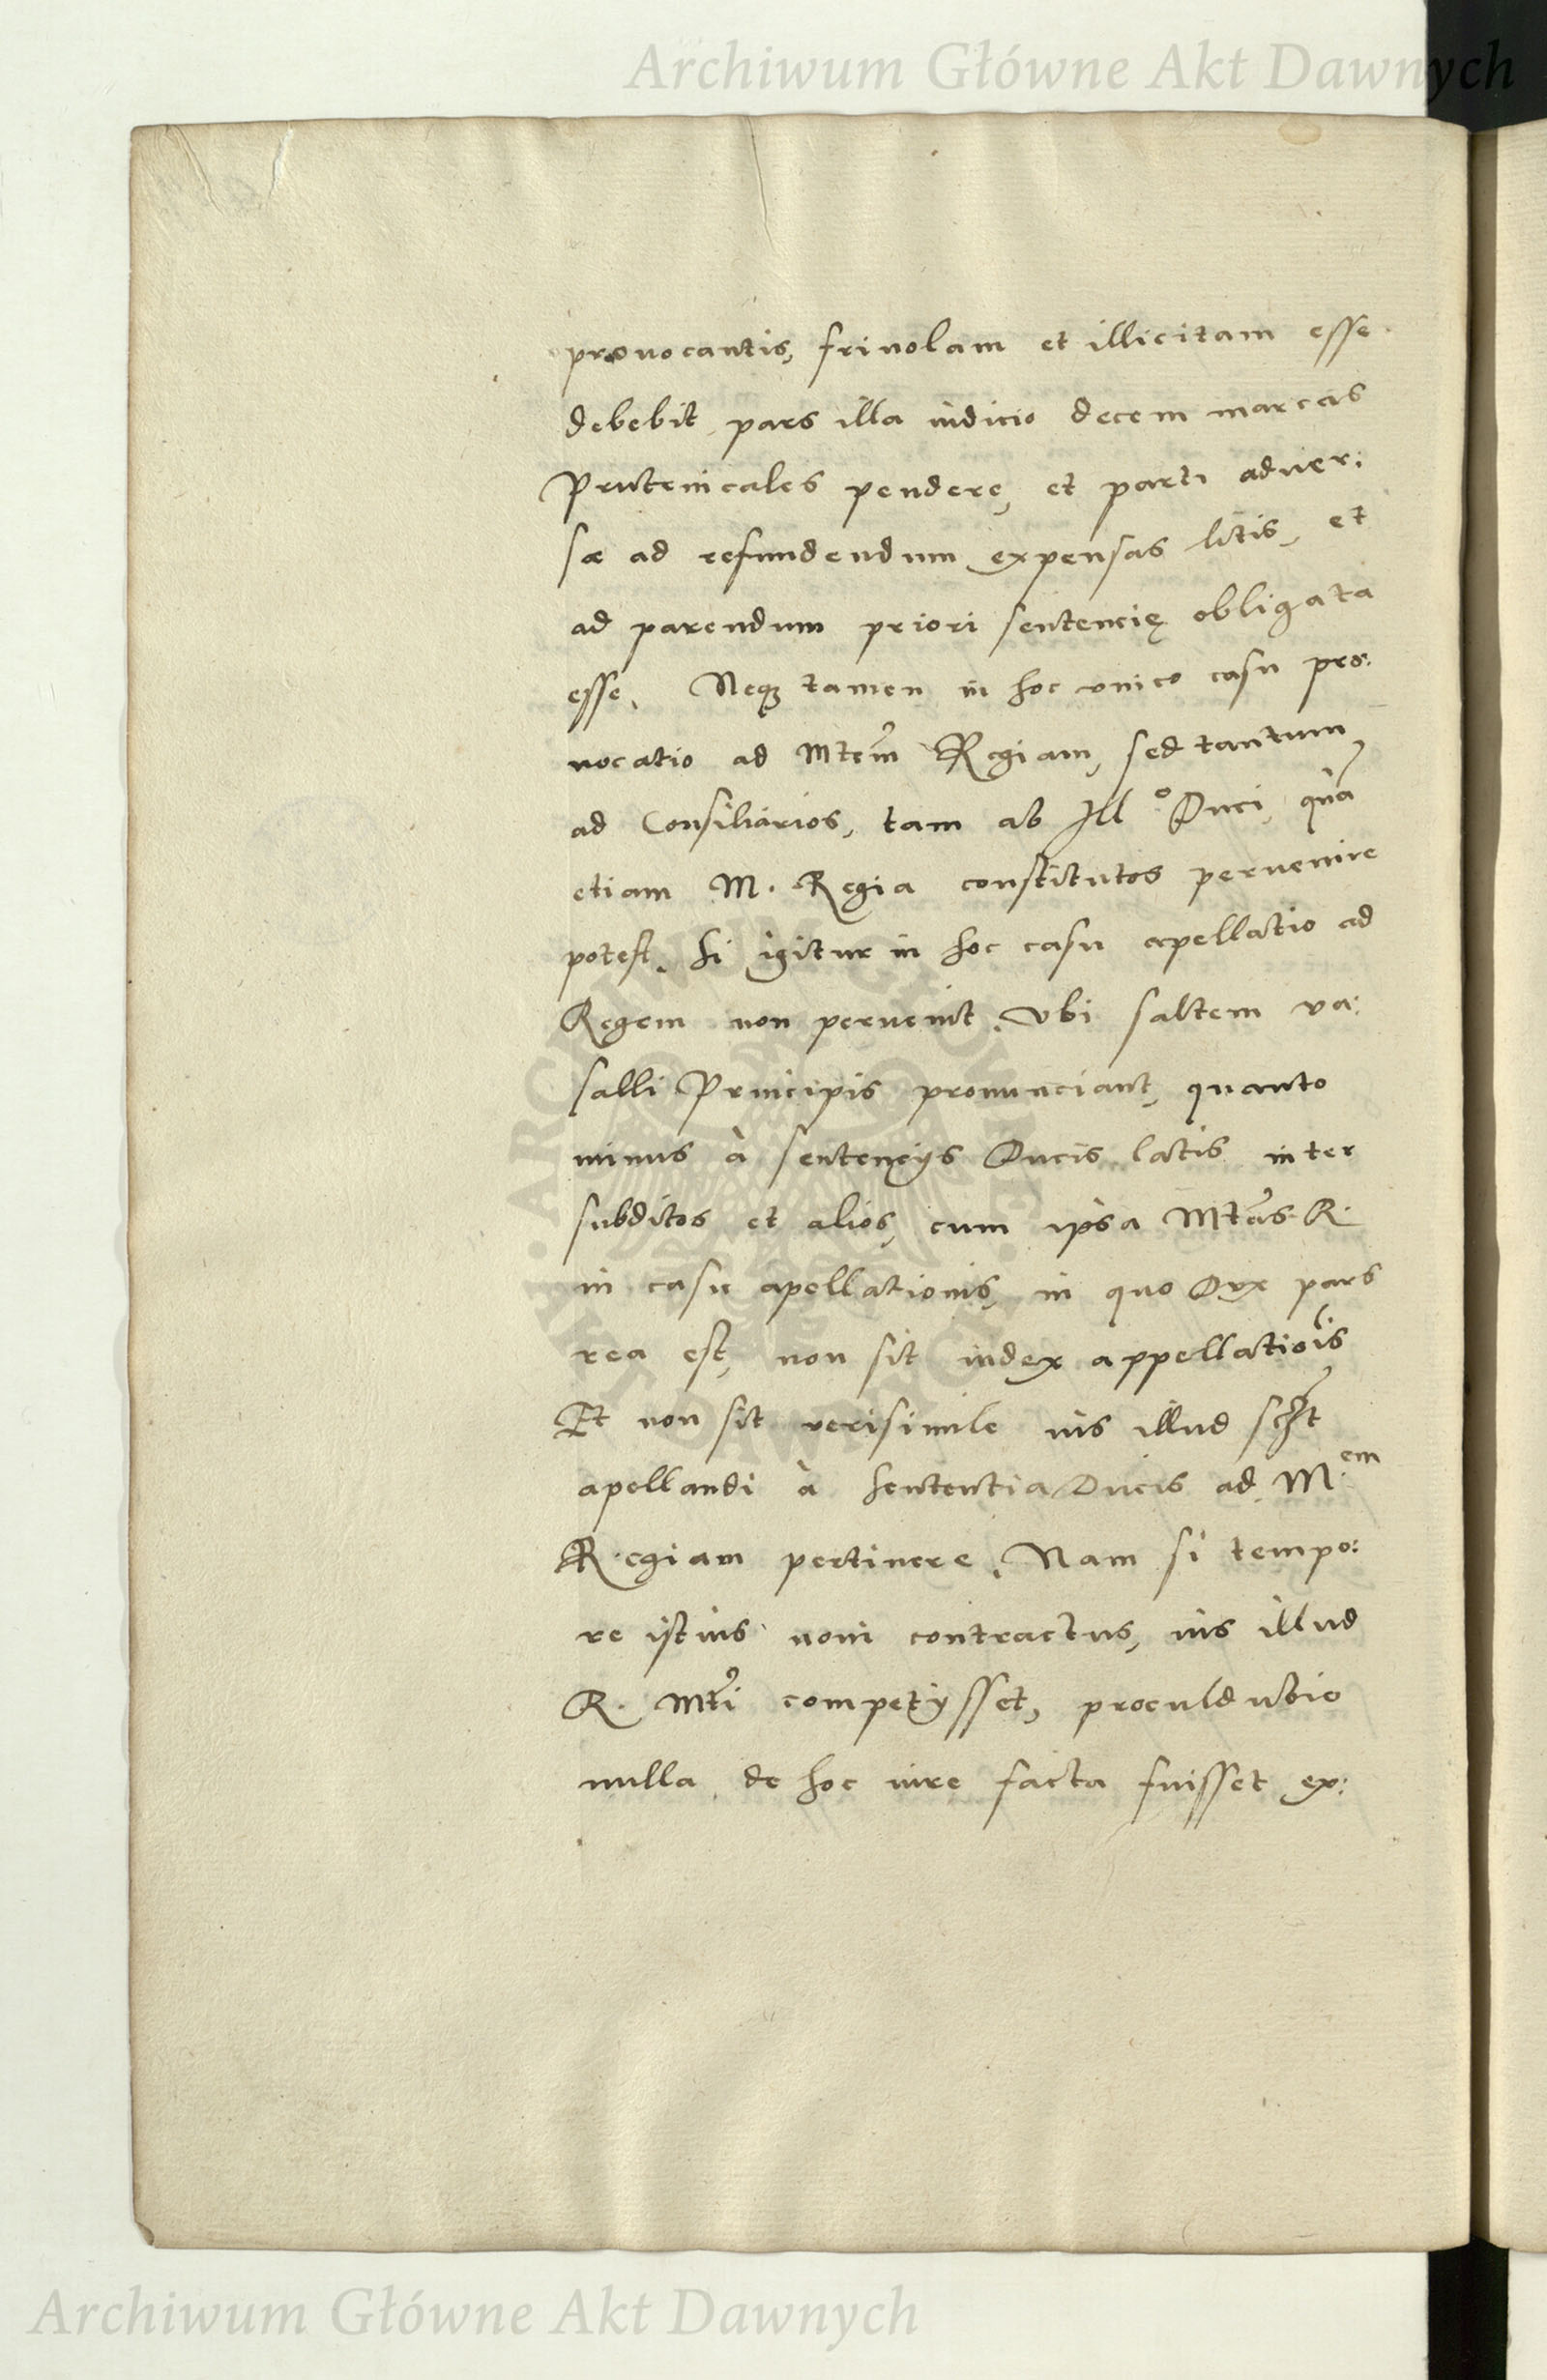 Archiwum Główne Akt Dawnych
prouocantis, friuolam et illicitam esse
debebit pars illa iudicio decem marcas
Prutenicales pendere, et parti aduer:
sæ ad refundendum expensas litis, et
ad parendum priori sentencię obligata
esse. Neqꝫ tamen in hoc vnico casu pro:
uocatio ad Mtem Regiam, sed tantum
ad Consiliarios, tam ab Ill.º Duci, quā
etiam M. Regia constitutos peruenire
potest. Si igitur in hoc casu apellatio ad
Regem non peruenit. Vbi saltem va:
salli Principis pronunciant, quanto
minus à sentencijs Ducis latis inter
subditos et alios, cum ipsa Mtas R.
in casu apellationis, in quo Dux pars
rea est, non sit iudex appellatiois
Et non sit verisimile ius illud
apellandi à Sententia Ducis ad M.em
Regiam pertinere. Nam si tempo:
re istius noui contractus, ius illud
R. Mti competijsset, proculdubio
nulla de hoc iure facta fuisset ex:
ARCHIWUM GŁÓWNE · AKT DAWNYCH ·
Archiwum Główne Akt Dawnych